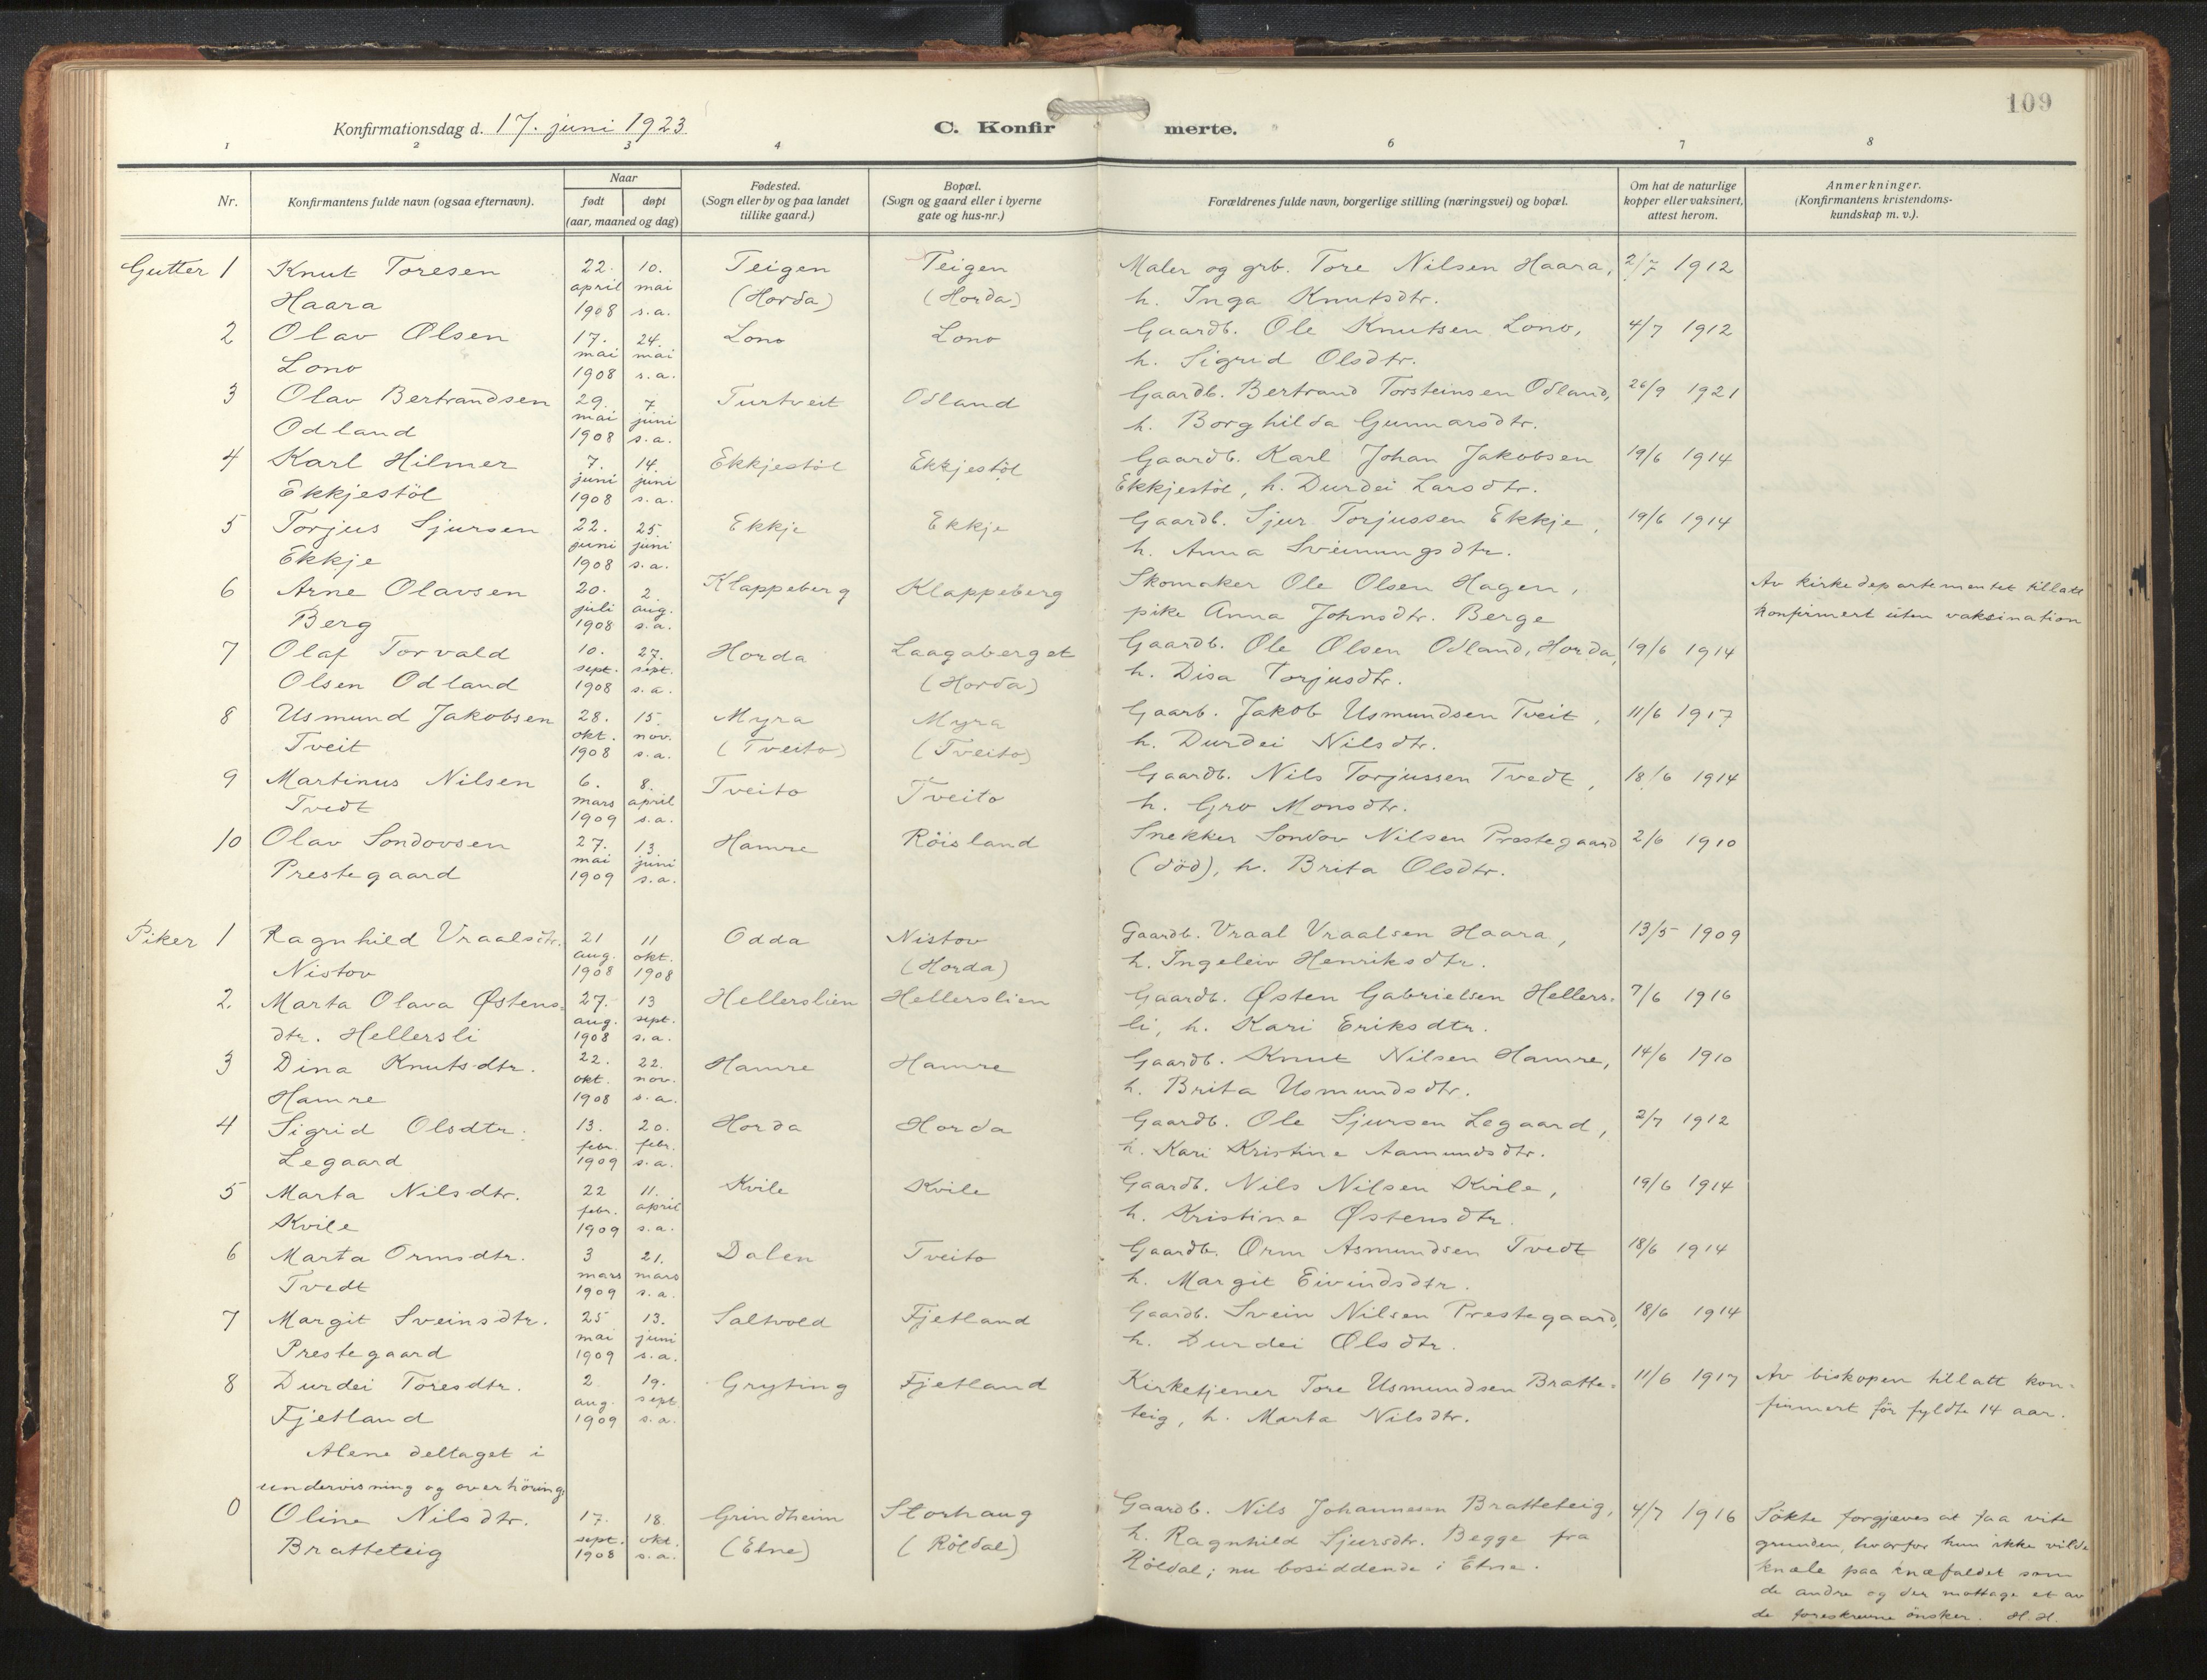 109
Konfirmationsdag d. 17. juni 1923
C. Konfirmerte.
1 2 3 4 6 7 8
Nr.
Konfirmantens fulde navn (ogsaa efternavn).
Naar
født
døpt
(aar, maaned og dag)
Fødested.
(Sogn eller by og paa landet
tillike gaard.)
Bopæl.
(Sogn og gaard eller i byerne
gate og hus-nr.)
Forældrenes fulde navn, borgerlige stilling (næringsvei) og bopæl.
Om hat de naturlige
kopper eller vaksinert,
attest herom.
Anmerkninger.
(Konfirmantens kristendoms-
kundskap m. v.).
Gutter 1 Knut Toresen 22. 10. Teigen Teigen Maler og grb. Tore Nilsen Haara, 2/7 1912
Haara april mai 1908 s.a. (Horda) (Horda) h. Inga Knutsdtr.
2 Olav Olsen 17. 24. Lono Lono Gaardb. Ole Knutsen Lono, 4/7 1912
Lono mai mai 1908 s.a. h. Sigrid Olsdtr.
3 Olav Bertrandsen 29. 7. Turtveit Odland Gaardb. Bertrand Torsteinsen Odland, 26/9 1921
Odland mai juni 1908 s.a. h. Borghilda Gunnarsdtr.
4 Karl Hilmer 7. 14. Ekkjestöl Ekkjestöl Gaardb. Karl Johan Jakobsen 19/6 1914
Ekkjestöl juni juni 1908 s.a. Ekkjestöl, h. Durdei Larsdtr.
5 Torjus Sjursen 22. 25. Ekkje Ekkje Gaardb. Sjur Torjussen Ekkje, 19/6 1914
Ekkje juni juni 1908 s.a. h. Anna Sveinungsdtr.
6 Arne Olavsen 20. 2. Klappeberg Klappeberg Skomaker Ole Olsen Hagen, Av kirkedepartementet tillatt
Berg juli aug. 1908 s.a. pike Anna Johnsdtr. Berge konfirmert uten vaksination
7 Olaf Torvald 10. 27. Horda Laagaberget Gaardb. Ole Olsen Odland, Horda, 19/6 1914
Olsen Odland sept. sept. 1908 s.a. (Horda) h. Disa Torjusdtr.
8 Usmund Jakobsen 28. 15. Myra Myra Gaarb. Jakob Usmundsen Tveit, 11/6 1917
Tveit okt. nov. 1908 s.a. (Tveito) (Tveito) h. Durdei Nilsdtr.
9 Martinus Nilsen 6. 8. Tveito Tveito Gaardb. Nils Torjussen Tvedt, 18/6 1914
Tvedt mars april 1909 s.a. h. Gro Monsdtr.
10 Olav Sondovsen 27. 13. Hamre Röisland Snekker Sondov Nilsen Prestegaard 2/6 1910
Prestegaard mai juni 1909 s.a. (död), h. Brita Olsdtr.
Piker 1 Ragnhild Vraalsdtr. 21 11 Odda Nistov Gaardb. Vraal Vraalsen Haara, 13/5 1909
Nistov aug. okt. 1908 1908 (Horda) h. Ingeleiv Henriksdtr.
2. Marta Olava Østens- 27. 13 Hellerslien Hellerslien Gaardb. Østen Gabrielsen Hellers- 7/6 1916
dtr. Hellersli aug. sept. 1908 s.a. li, h. Kari Eriksdtr.
3 Dina Knutsdtr. 22. 22. Hamre Hamre Gaardb. Knut Nilsen Hamre, 14/6 1910
Hamre okt. nov. 1908 s.a. h. Brita Usmundsdtr.
4 Sigrid Olsdtr. 13. 20. Horda Horda Gaardb. Ole Sjursen Legaard, 2/7 1912
Legaard febr. febr. 1909 s.a. h. Kari Kristine Aamundsdtr.
5 Marta Nilsdtr. 22 11. Kvile Kvile Gaardb. Nils Nilsen Kvile, 19/6 1914
Kvile febr. april 1909 s.a. h. Kristine Østensdtr.
6 Marta Ormsdtr. 3 21. Dalen Tveito Gaardb. Orm Asmundsen Tvedt 18/6 1914
Tvedt mars mars 1909 s.a. h. Margit Eivindsdtr.
7 Margit Sveinsdtr. 25 13. Saltvold Fjetland Gaardb. Svein Nilsen Prestegaard, 18/6 1914
Prestegaard mai juni 1909 s.a. h. Durdei Olsdtr.
8 Durdei Toresdtr. 2 19. Gryting Fjetland Kirketjener Tore Usmundsen Bratte- 11/6 1917 Av biskopen tillatt kon-
Fjetland aug. sept 1909 s.a. teig, h. Marta Nilsdtr. firmert för fyldte 14 aar.
Alene deltaget i
undervisning og overhöring
0 Oline Nilsdtr. 17. 18. Grindheim Storhaug Gaardb. Nils Johannesen Bratteteig, 4/7 1916 Sökte forgjeves at faa vite
Bratteteig sept. okt. 1908 s.a. (Etne) (Röldal) h. Ragnhild Sjursdtr. Begge fra grunden, hvorfor hun ikke vilde
Röldal; nu bosiddende i Etne. knæle paa knæfaldet som
de andre og der mottage et av
de foreskrevne önsker. H.H.